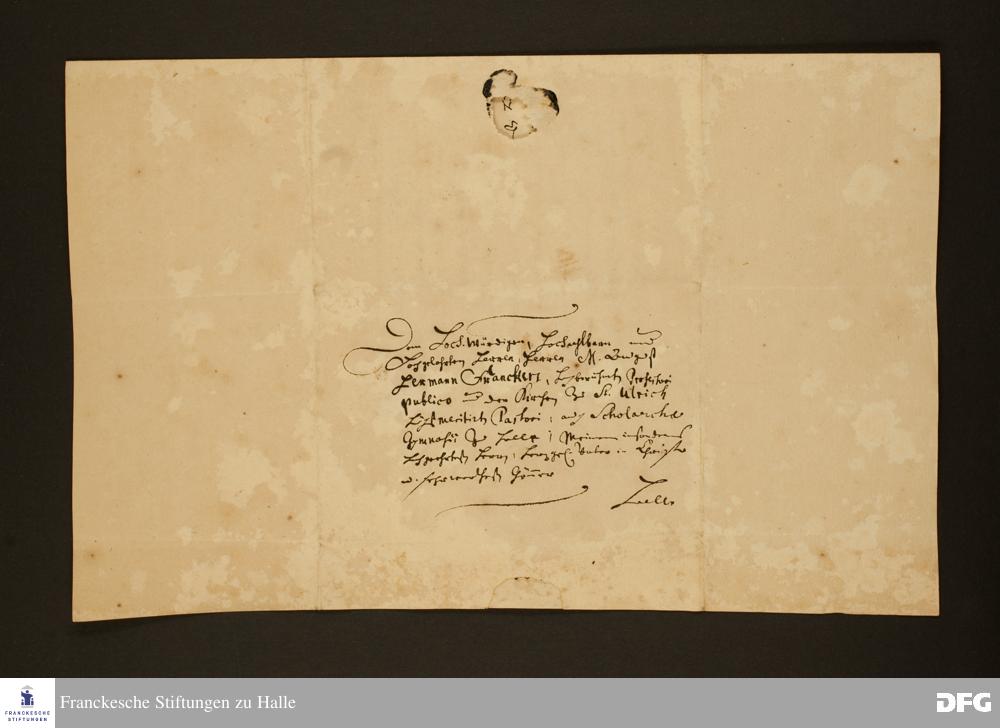 Dem HochWürdigen, Hochachtbarn und
Hochgelahrten Herren, Herren M. August
Hermann Francken, Professori
publico und der Kirchen zu St. Ulrich
Pastori, auch Scholarchæ
Gymnasii zu Halle, Meinem insonders
Hochgeehrten Herrn, Vater in Christo
u. Gönner
Halle
FRANCKESCHE
STIFTUNGEN
Franckesche Stiftungen zu Halle
DFG